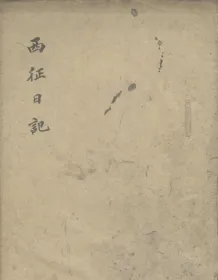 西征日記